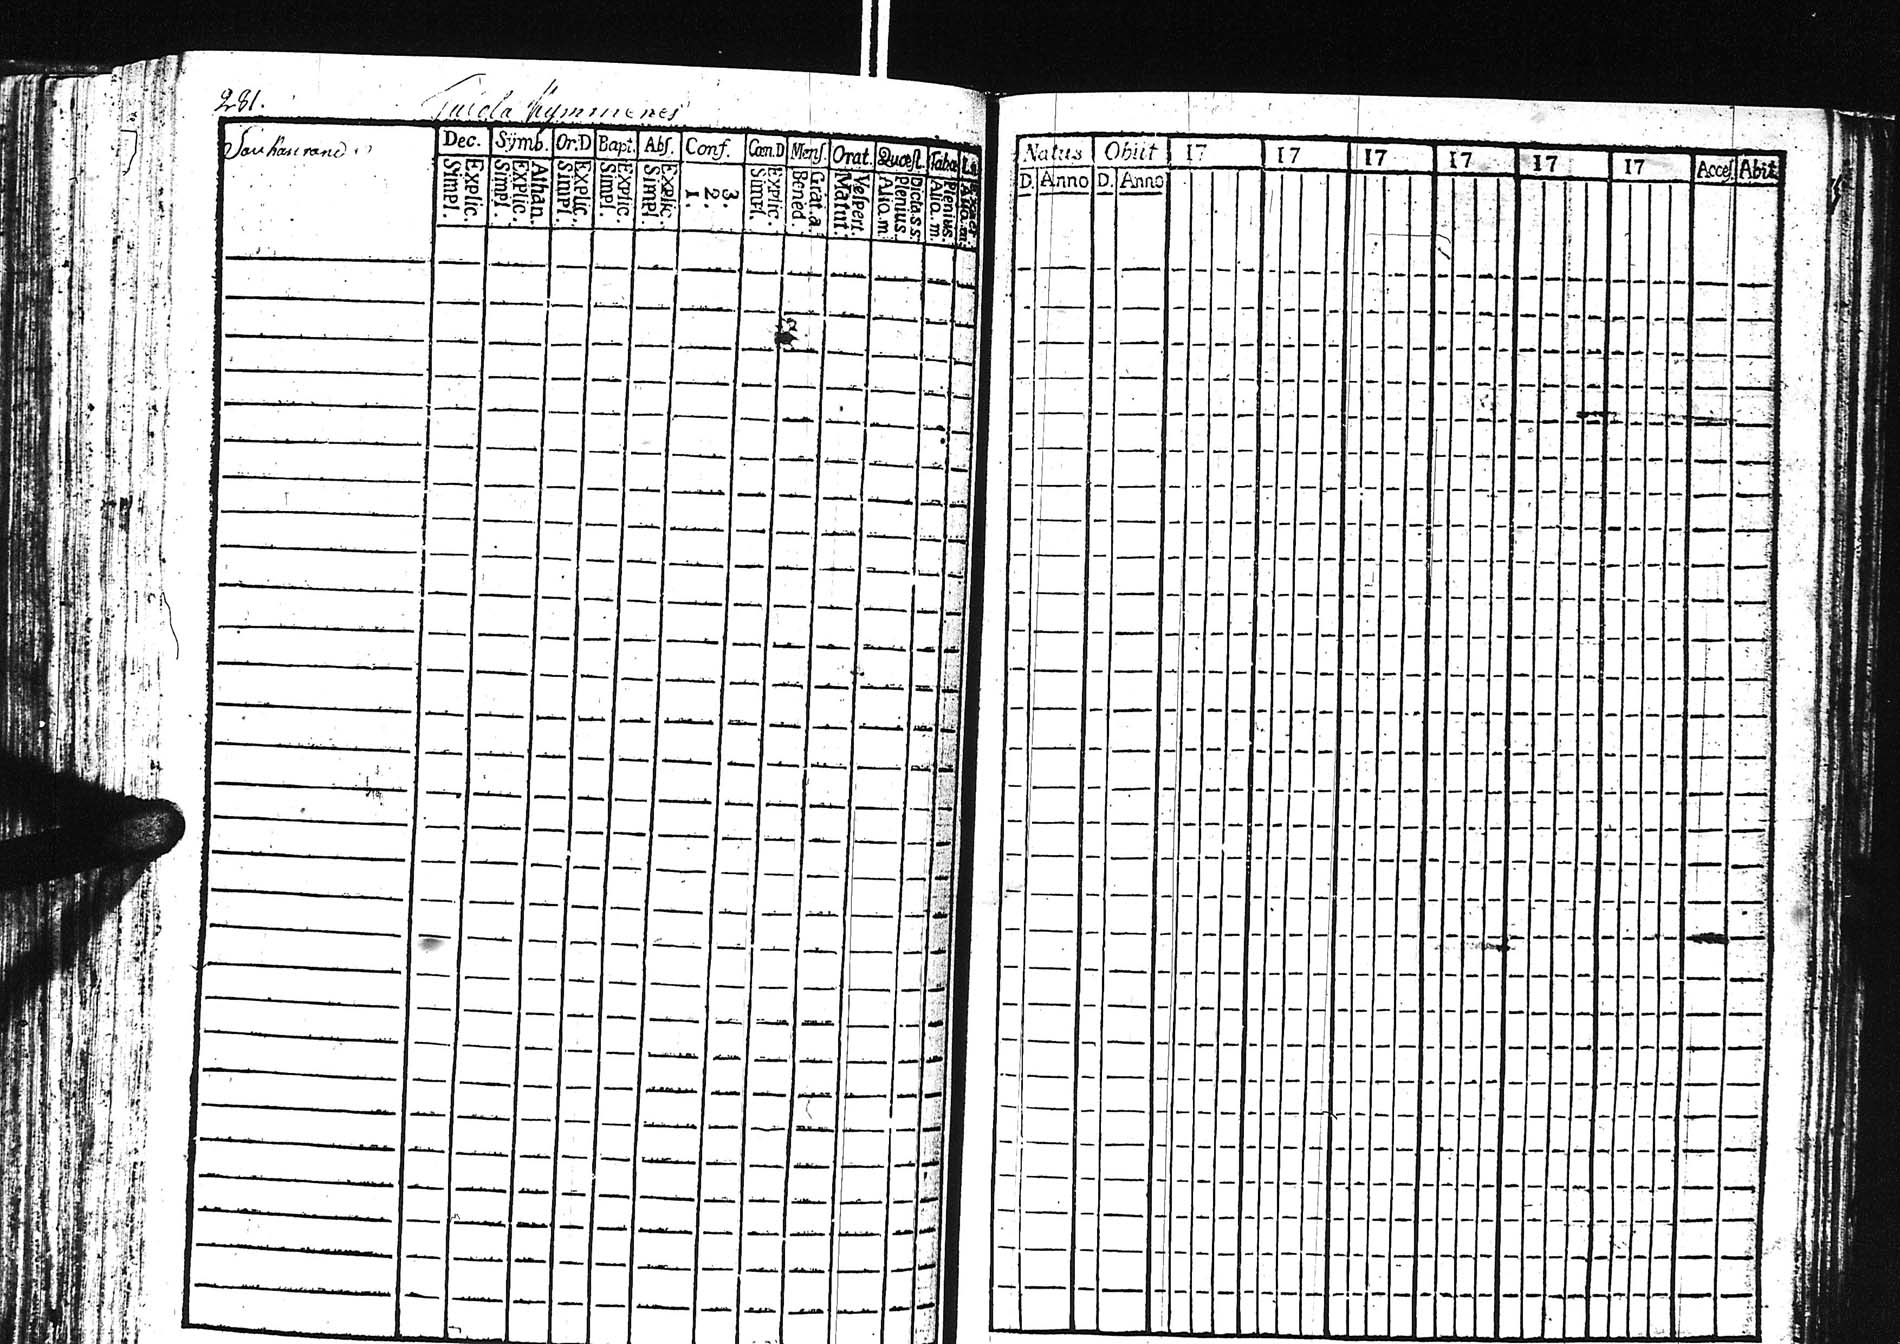 281.
Kymmenes
Dec. Sÿmb. Or.D Bapt. Abſ. Conf. Cœn.D Menſ. Orat. Quœſt. Tabœ
Simpl. Explic. Simpl. Explic. Athan. Simpl. Explic. Simpl. Explic. Simpl. Explic. 1. 2. 3. Simpl. Explic. Bened. Grat.a. Matut. Veſpert. Alio.m. Plenius Dicta.s.s. Alio.m. Plenius.
Natus Obiit 17 17 17 17 17 17 Acceſ. Abiit
D. Anno D. Anno